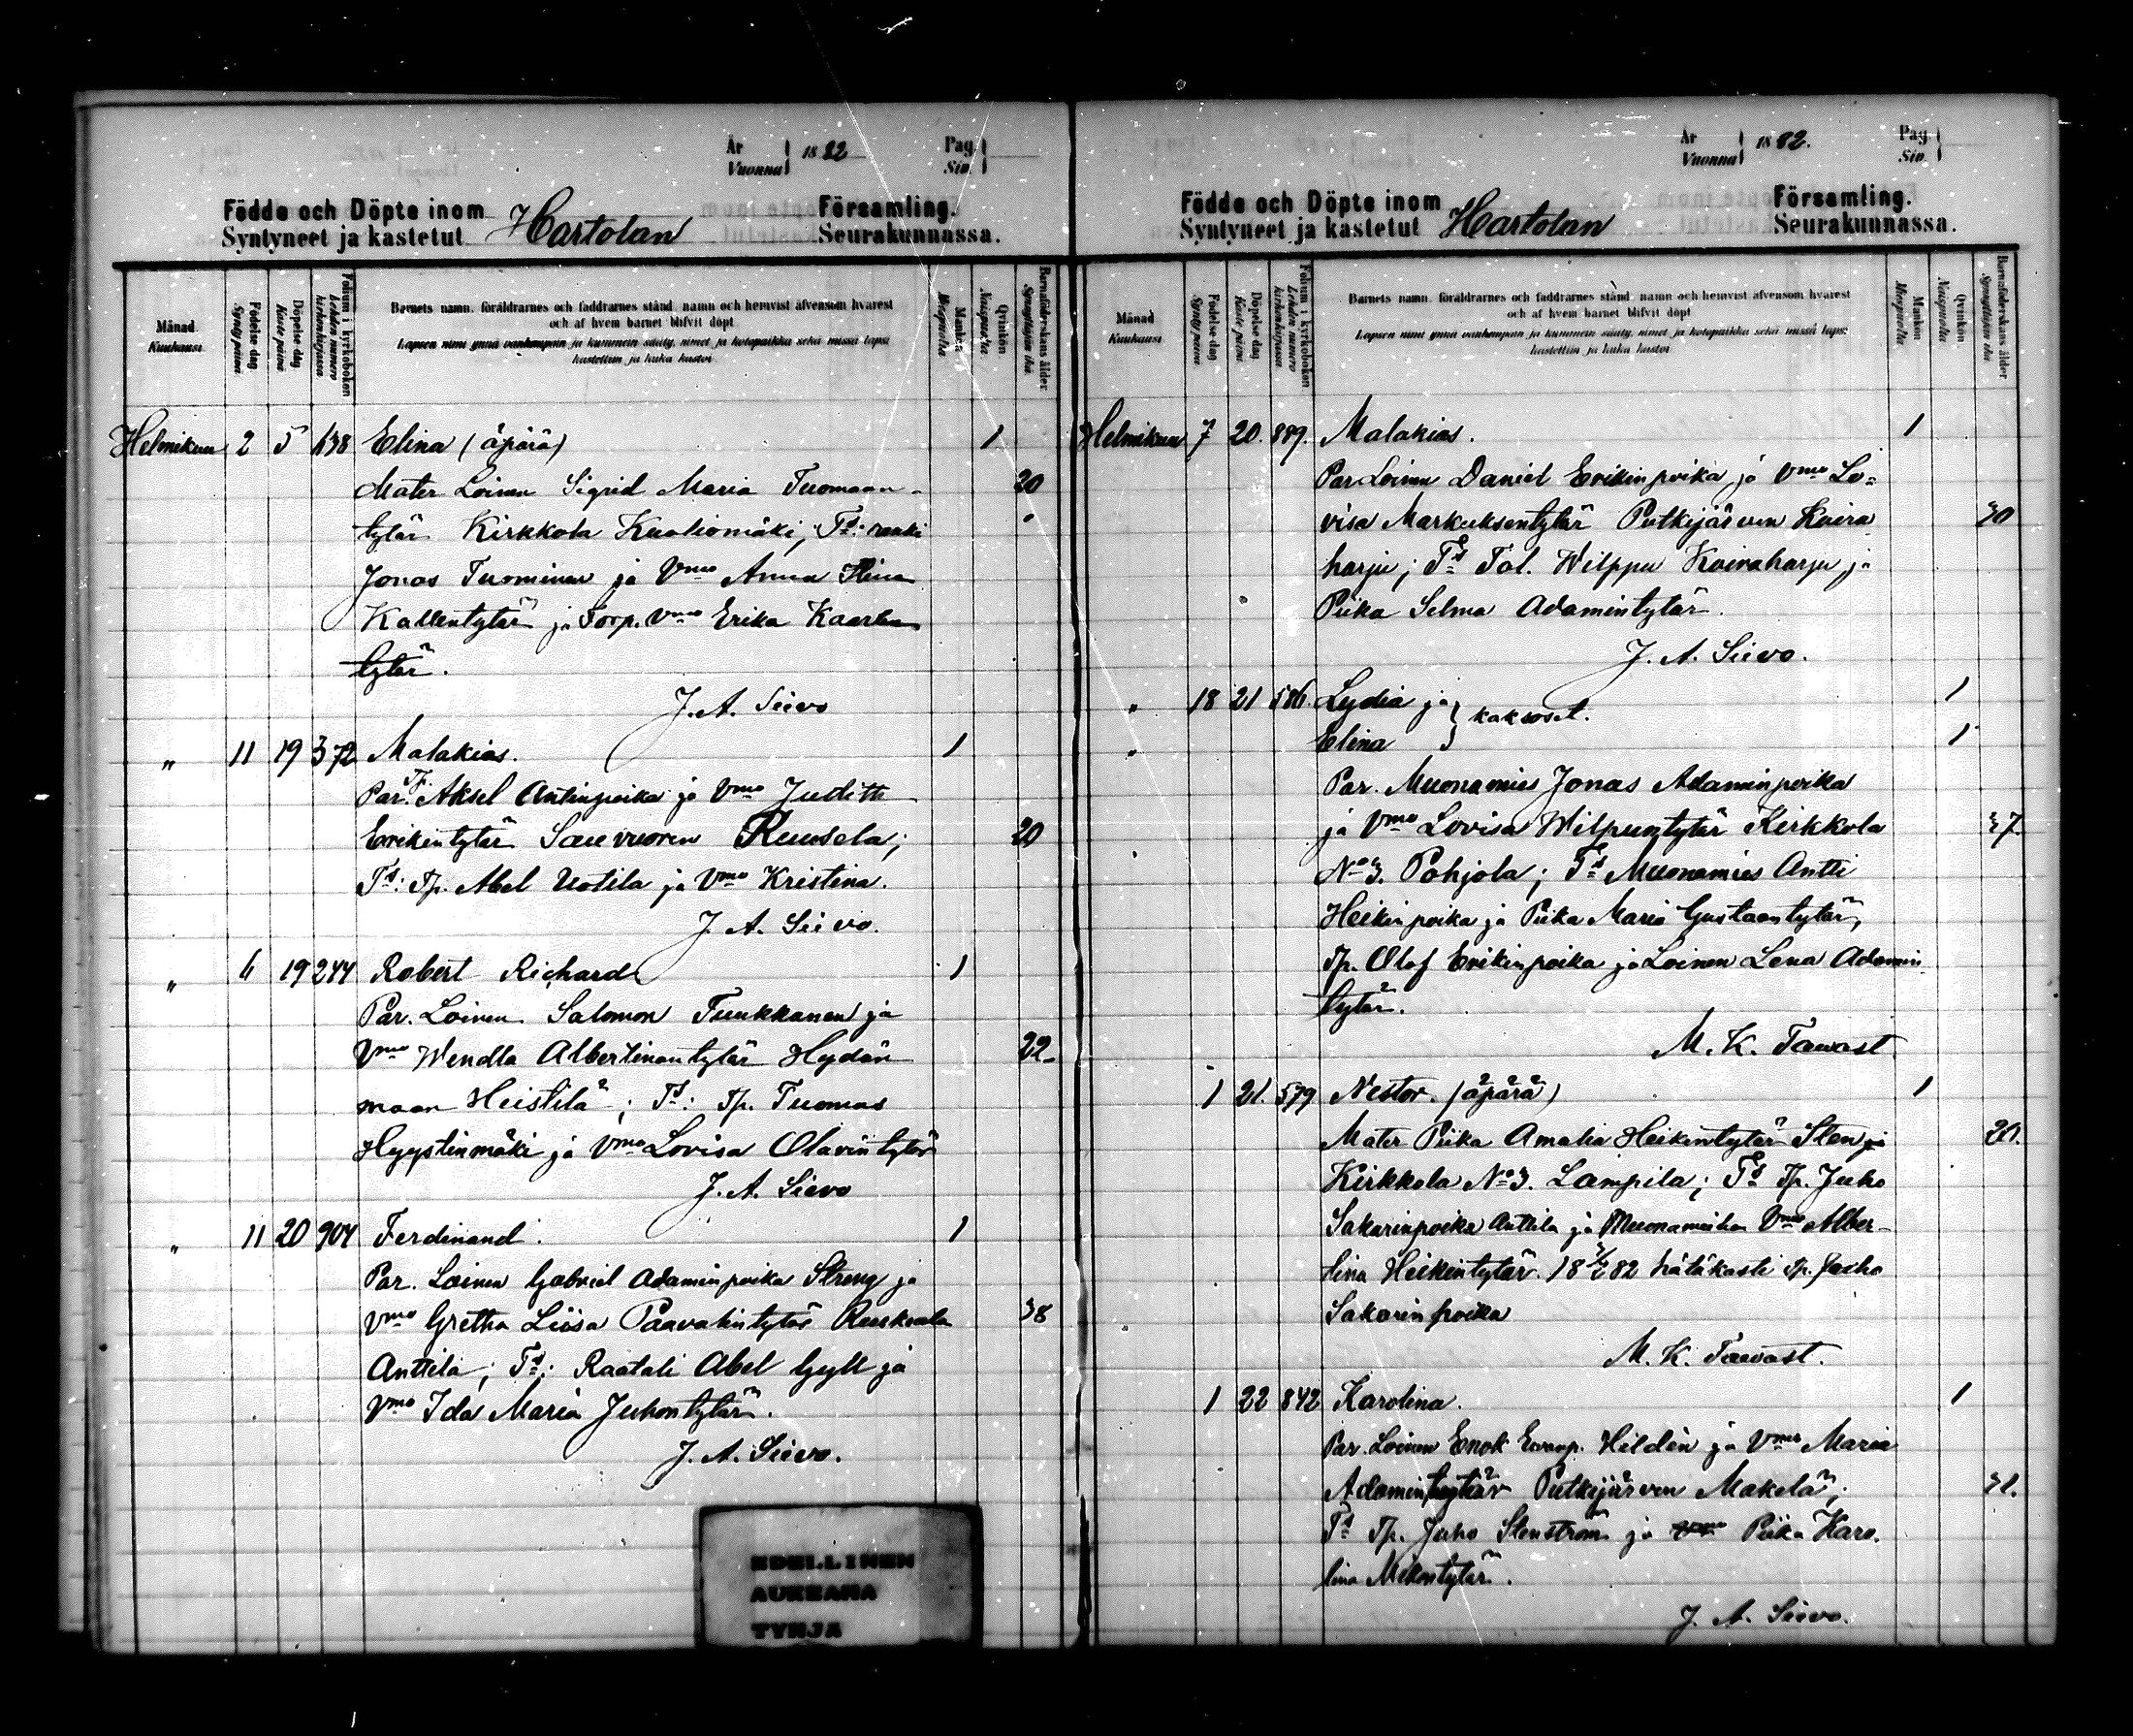 År
Vuonna 1882
Pag.
Siv.
Födde och Döpte inom Hartolan Församling.
Syntyneet ja kastetut Seurakunnassa.
Månad
Kuukausi
Födelse dag
Synty päivä
Döpelse dag
Kaste päivä
Folium i kyrkoboken
Lehden numero kirkonkirjassa
Barnets namn, föräldrarnes och faddrarnes stånd, namn och hemvist äfvensom hvarest
och af hvem barnet blifvit döpt
Lapsen nimi ynnä vanhempain ja kummein sääty, nimet ja kotopaikka sekä missä lapsi
kastettiin ja kuka kastoi
Mankön
Miespuolta
Qvinkön
Naispuolta
Barnaföderskans ålder
Synnyttäjän ikä
Helmikuu 2 5 638 Elina (äpärä) 1
Mater Loinen Sigrid Maria Tuomaan- 20
tytär Kirkkola Kuoliomäki; Ts: renki
Jonas Tuominen ja Vmo Anna Stina
Kallentytär ja Torp. Vmo Erika Kaarlen
tytär.
J. A. Sievo
" 11 19 372 Malakias. 1
Par. Tp. Aksel Antinpoika ja Vmo Judith
Erikintytär Sauvuoren Ruusela; 20
Ts: Tp. Abel Uotila ja Vmo Kristina.
J. A. Sievo.
" 6 19 244 Robert Richard 1
Par. Loinen Salomon Tuukkanen ja
Vmo Wendla Albertinantytär Hydän 22
maan Heistilä; Ts: Tp. Tuomas
Hyystinmäki ja Vmo Lovisa Olavintytär
J. A. Sievo
" 11 20 904 Ferdinand. 1
Par. Loinen Gabriel Adaminpoika Streng ja
Vmo Gretha Liisa Paavalintytär Ruskeala 38
Anttila; Ts: Raatali Abel Gyll ja
Vmo Ida Maria Juhontytär.
J. A. Sievo.
EDELLINEN
AUKEAMA
TYHJÄ
År
Vuonna 1882.
Pag
Siv.
Födde och Döpte inom Hartolan Församling.
Syntyneet ja kastetut Seurakunnassa.
Månad
Kuukausi
Födelse dag
Synty päivä
Döpelse dag
Kaste päivä
Folium i kyrkoboken
Lehden numero kirkonkirjassa
Barnets namn, föräldrarnes och faddrarnes stånd, namn och hemvist äfvensom hvarest
och af hvem barnet blifvit döpt
Lapsen nimi ynnä vanhempain ja kummein sääty, nimet ja kotopaikka sekä missä lapsi
kastettiin ja kuka kastoi
Mankön
Miespuolta
Qvinkön
Naispuolta
Barnaföderskans ålder
Synnyttäjän ikä
Helmikuu 7 20. 889. Malakias. 1
Par Loinen Daniel Erikinpoika ja Vmo Lo-
visa Markuksentytär Putkijärven Koira 30
harju; Ts Tal. Wilppu Koiraharju ja
Piika Selma Adamintytär.
J. A. Sievo.
" 18 21 586 Lydia ja 1
" Elina } kaksoset. 1
Par. Muonamies Jonas Adaminpoika
ja Vmo Lovisa Wilpuntytär Kirkkola 37
No 3. Pohjola; Ts Muonamies Antti
Heikinpoika ja Piika Maria Gustaantytär,
Tp. Olof Erikinpoika ja Loinen Lena Adamin
tytär.
M. K. Tavast
1 21. 579 Nestor. (äpärä) 1
Mater Piika Amalia Heikintytär Sten ja 20.
Kirkkola No 3. Lampila; Ts Tp. Juho
Sakarinpoika Anttila ja Muonamiehen Vmo Alber-
tina Heikintytär. 18 2/2 82 hätäkasti Tp. Juho
Sakarinpoika
M. K. Tavast.
1 22 842 Karolina. 1
Par. Loinen Enok Hildén ja Vmo Maria
Adamintytär Putkijärven Makelä; 31.
Ts Tp. Juho Stenström ja Piika Karo-
lina Mikontytär.
J. A. Sievo.